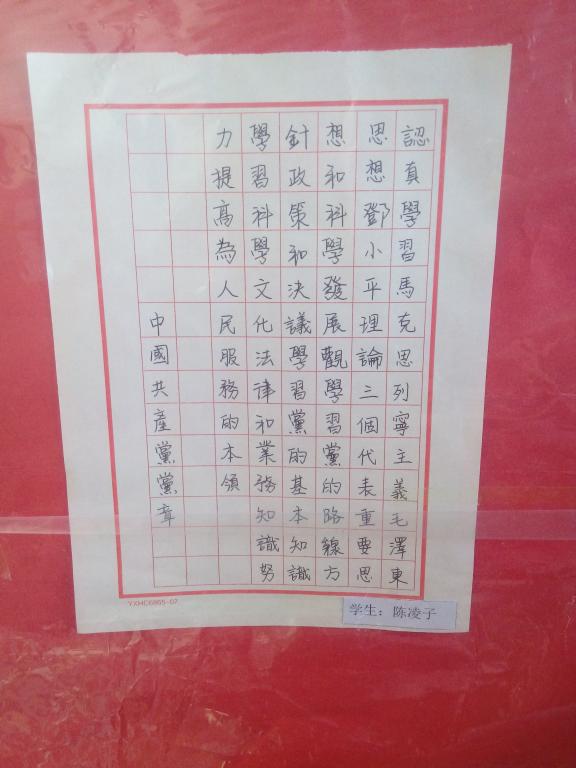 認真學習馬克思列寧主義毛澤東
思想鄧小平理論三個代表重要思
想和科學發展觀學習黨的路線方
針政策和決議學習黨的基本知識
學習科學文化法律和業務知識努
力提高為人民服務的本領
中國共產黨黨章
学生：陈凌子